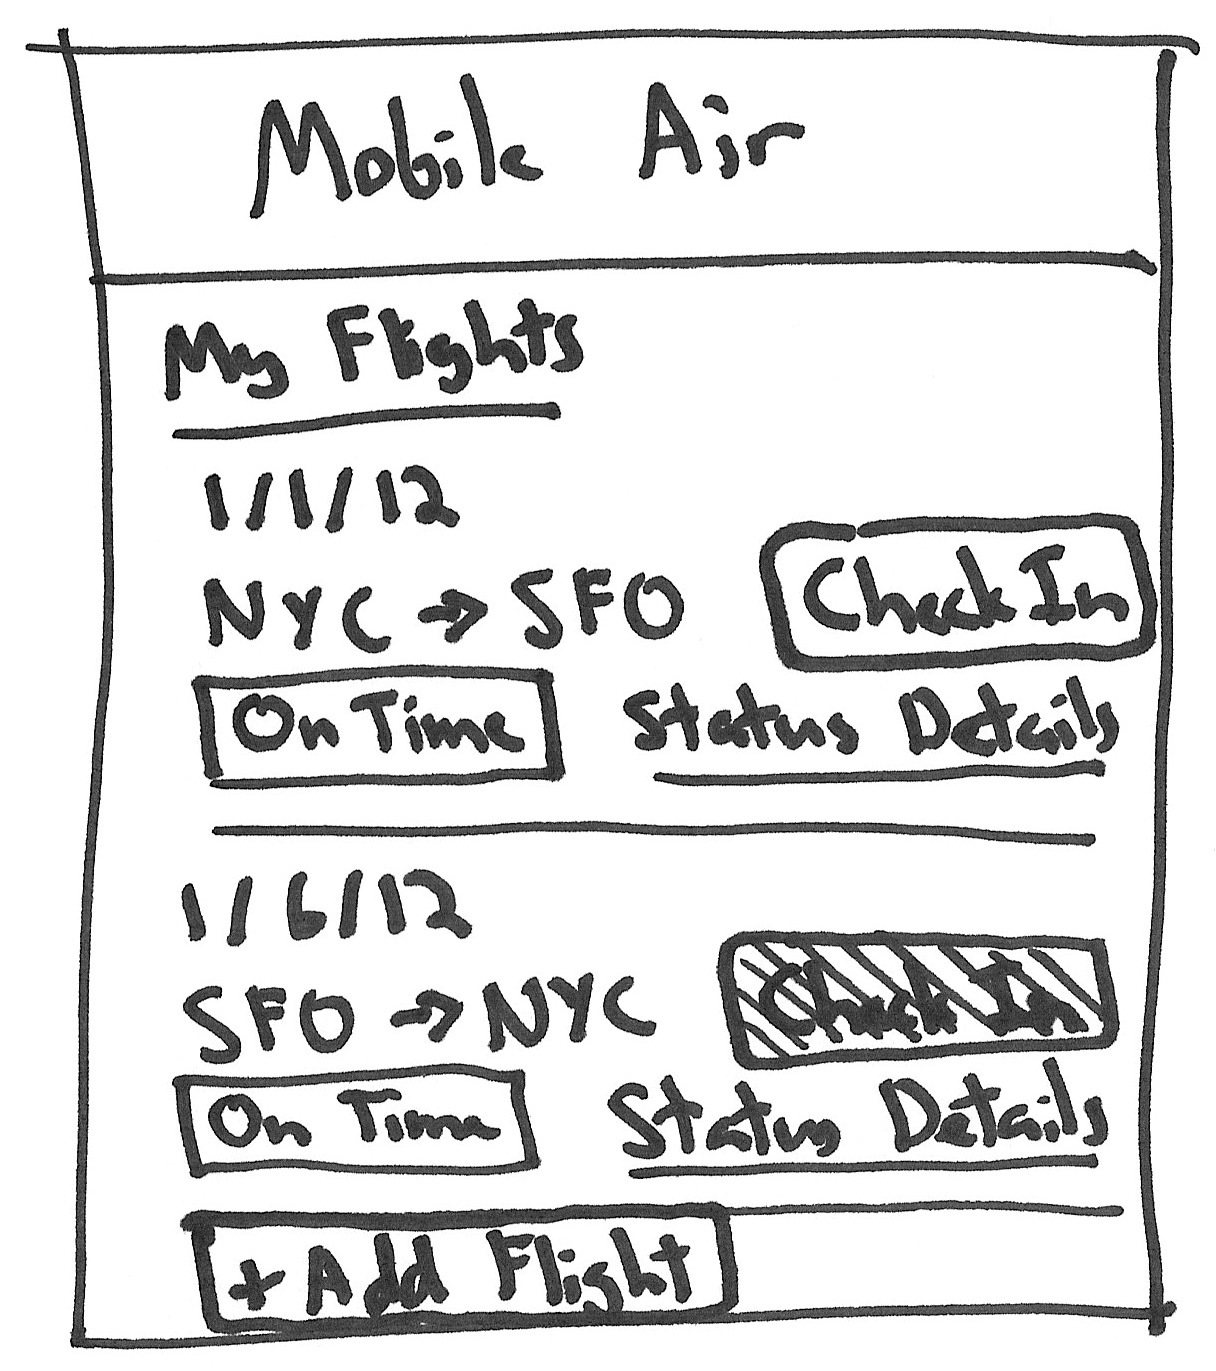 Mobile Air
My Flights
1/1/12
NYC → SFO Check In
On Time Status Details
1/6/12
SFO → NYC Check In
On Time Status Details
+ Add Flight